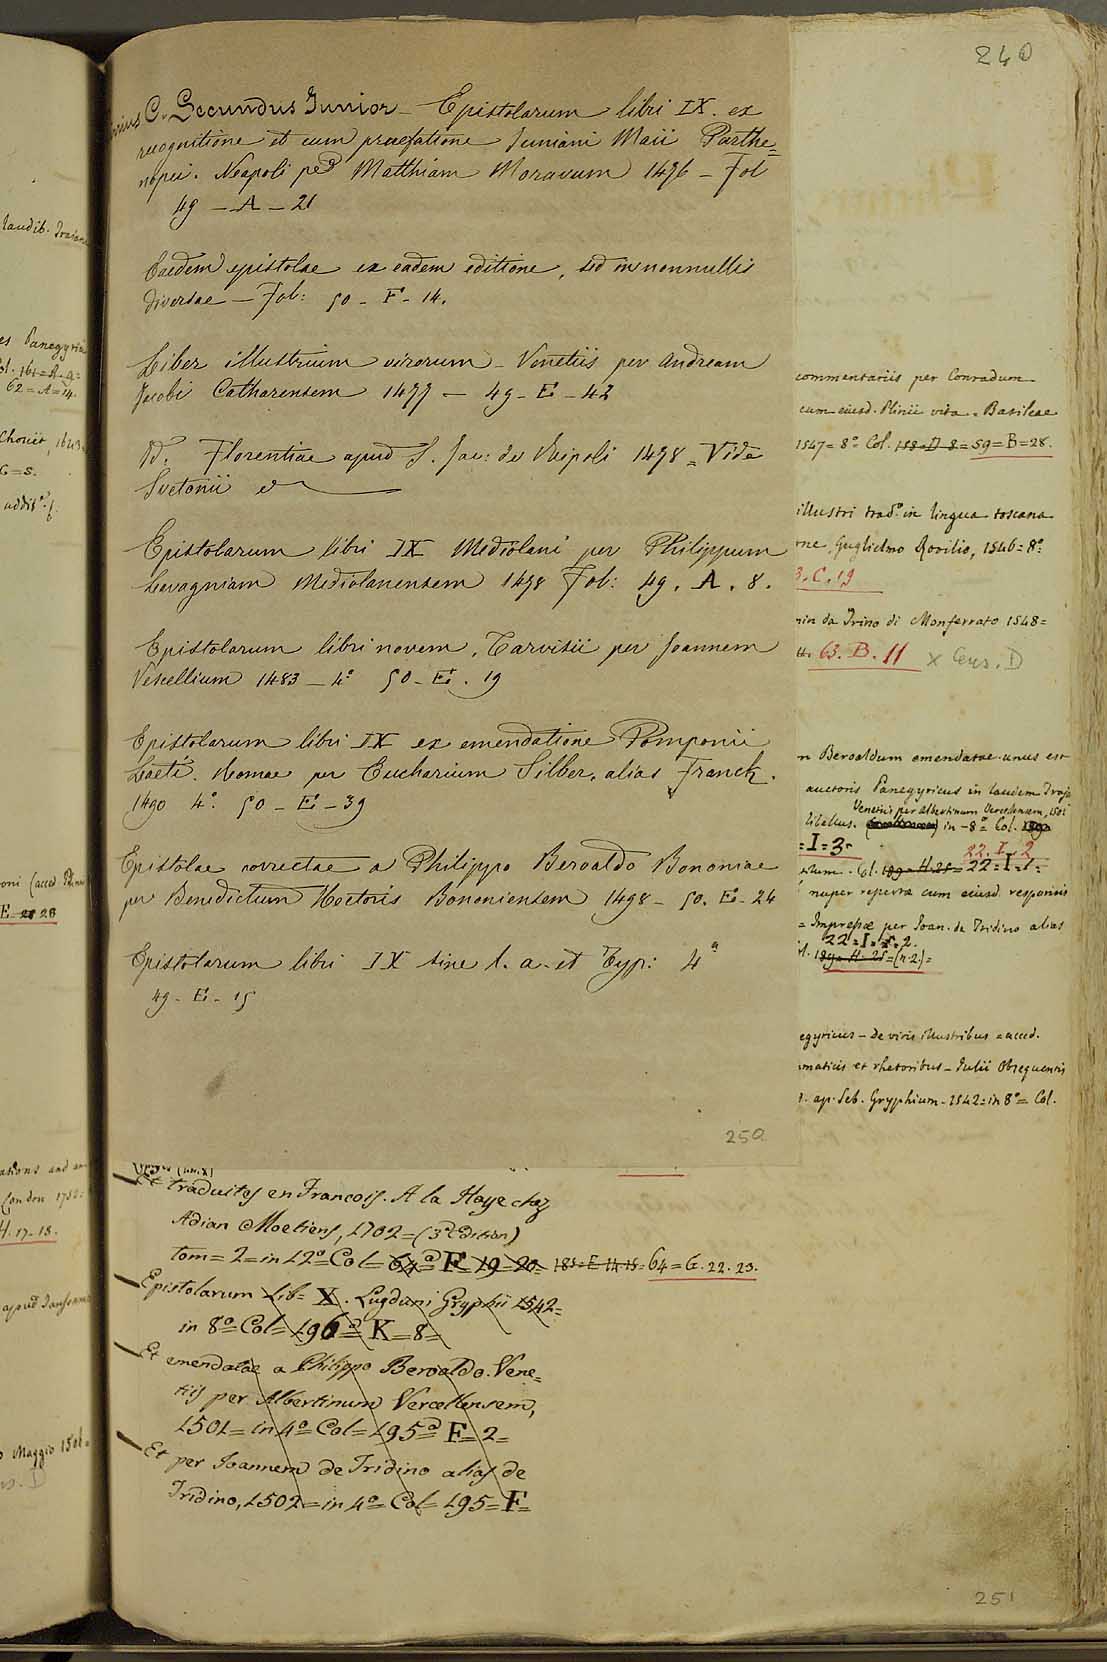 240
C. Secundus Junior – Epistolarum libri IX. ex
recognitione et cum praefatione Juniani Maii Parthe=
nopei. Neapoli per Matthiam Moravum 1476 – Fol
49 – A – 21
Eaedem epistolae ex eadem editione, sed in nonnullis
diversae – Fol: 50 – F – 14.
Liber illustrium virorum – Venetiis per Andream
Jacobi Catharensem 1477 – 49 – E – 42
Id. Florentiae apud S. Jac: de Ripoli 1478 = Vide
Svetonii
Epistolarum libri IX Mediolani per Philippum
Lavagniam Mediolanensem 1478 Fol: 49. A. 8.
Epistolarum libri novem, Tarvisii per Joannem
Vercellium 1483 – 4° 50 – E. 19
Epistolarum libri IX ex emendatione Pomponii
Laeti. Romae per Eucharium Silber, alias Franck.
1490 4° 50 – E – 39
Epistolae correctae a Philippo Beroaldo Bononiae
per Benedictum Hectoris Bononiensem 1498 – 50. E – 24
Epistolarum libri IX sine l. a. et Typ: 4°
49 – E – 15
250
Et traduites en Francois. A la Haye chez
Adian Moetiens, 1702 = (3a Edition)
tom = 2 = in 12° = Col = 64 = F = 19 = 20 = 183 = E 14. 15 = 64 = G. 22. 23.
Epistolarum Lib = X. Lugduni Gryphii 1542 =
in 8° = Col = 196 = K = 8 =
Et emendatae a Philippo Beroaldo. Vene=
tiis per Albertinum Vercellensem,
1501 = in 4° = Col = 195 = F = 2 =
Et per Joannem de Tridino alias de
Tridino, 1502 = in 4° = Col = 195 = F =
commentariis per Conradum
cum eiusd. Plinii vita = Basileae
1547 = 8° Col. 188 = D 8 = 59 = B = 28.
illustri trado. in lingua toscana
Guglielmo Rovilio, 1546 = 8°:
3. C. 19
da Trino di Monferrato 1548 =
63. B. 11 x Cens. D
Beroaldum emendatae unus est
auctoris Panegyricus in laudem Traja
Venetiis per Albertinum Vercellensem, 1501
libellus. in – 8° = Col.
= I = 3 =
22. I. 2
Col. 189 = H. 25 = 22 = I = 1 =
nuper repertae cum eiusd. responsis
= Impressae per Joan. de Tridino alias
22 = I = 2.
189 = H. 25 = (n. 2) =
egyricus – De viris illustribus = acced.
maticis et rhetoribus – Julii Obsequentis
ap. Seb. Gryphium – 1542 = in 8° = Col.
251
laudib. Trajani
Panegyrici
161 = A = 9 =
62 = A = 14.
Chouët, 1643
C = 5.
E = 28 26
London 1752 =
H. 17 = 18.
Maggio 1506 =